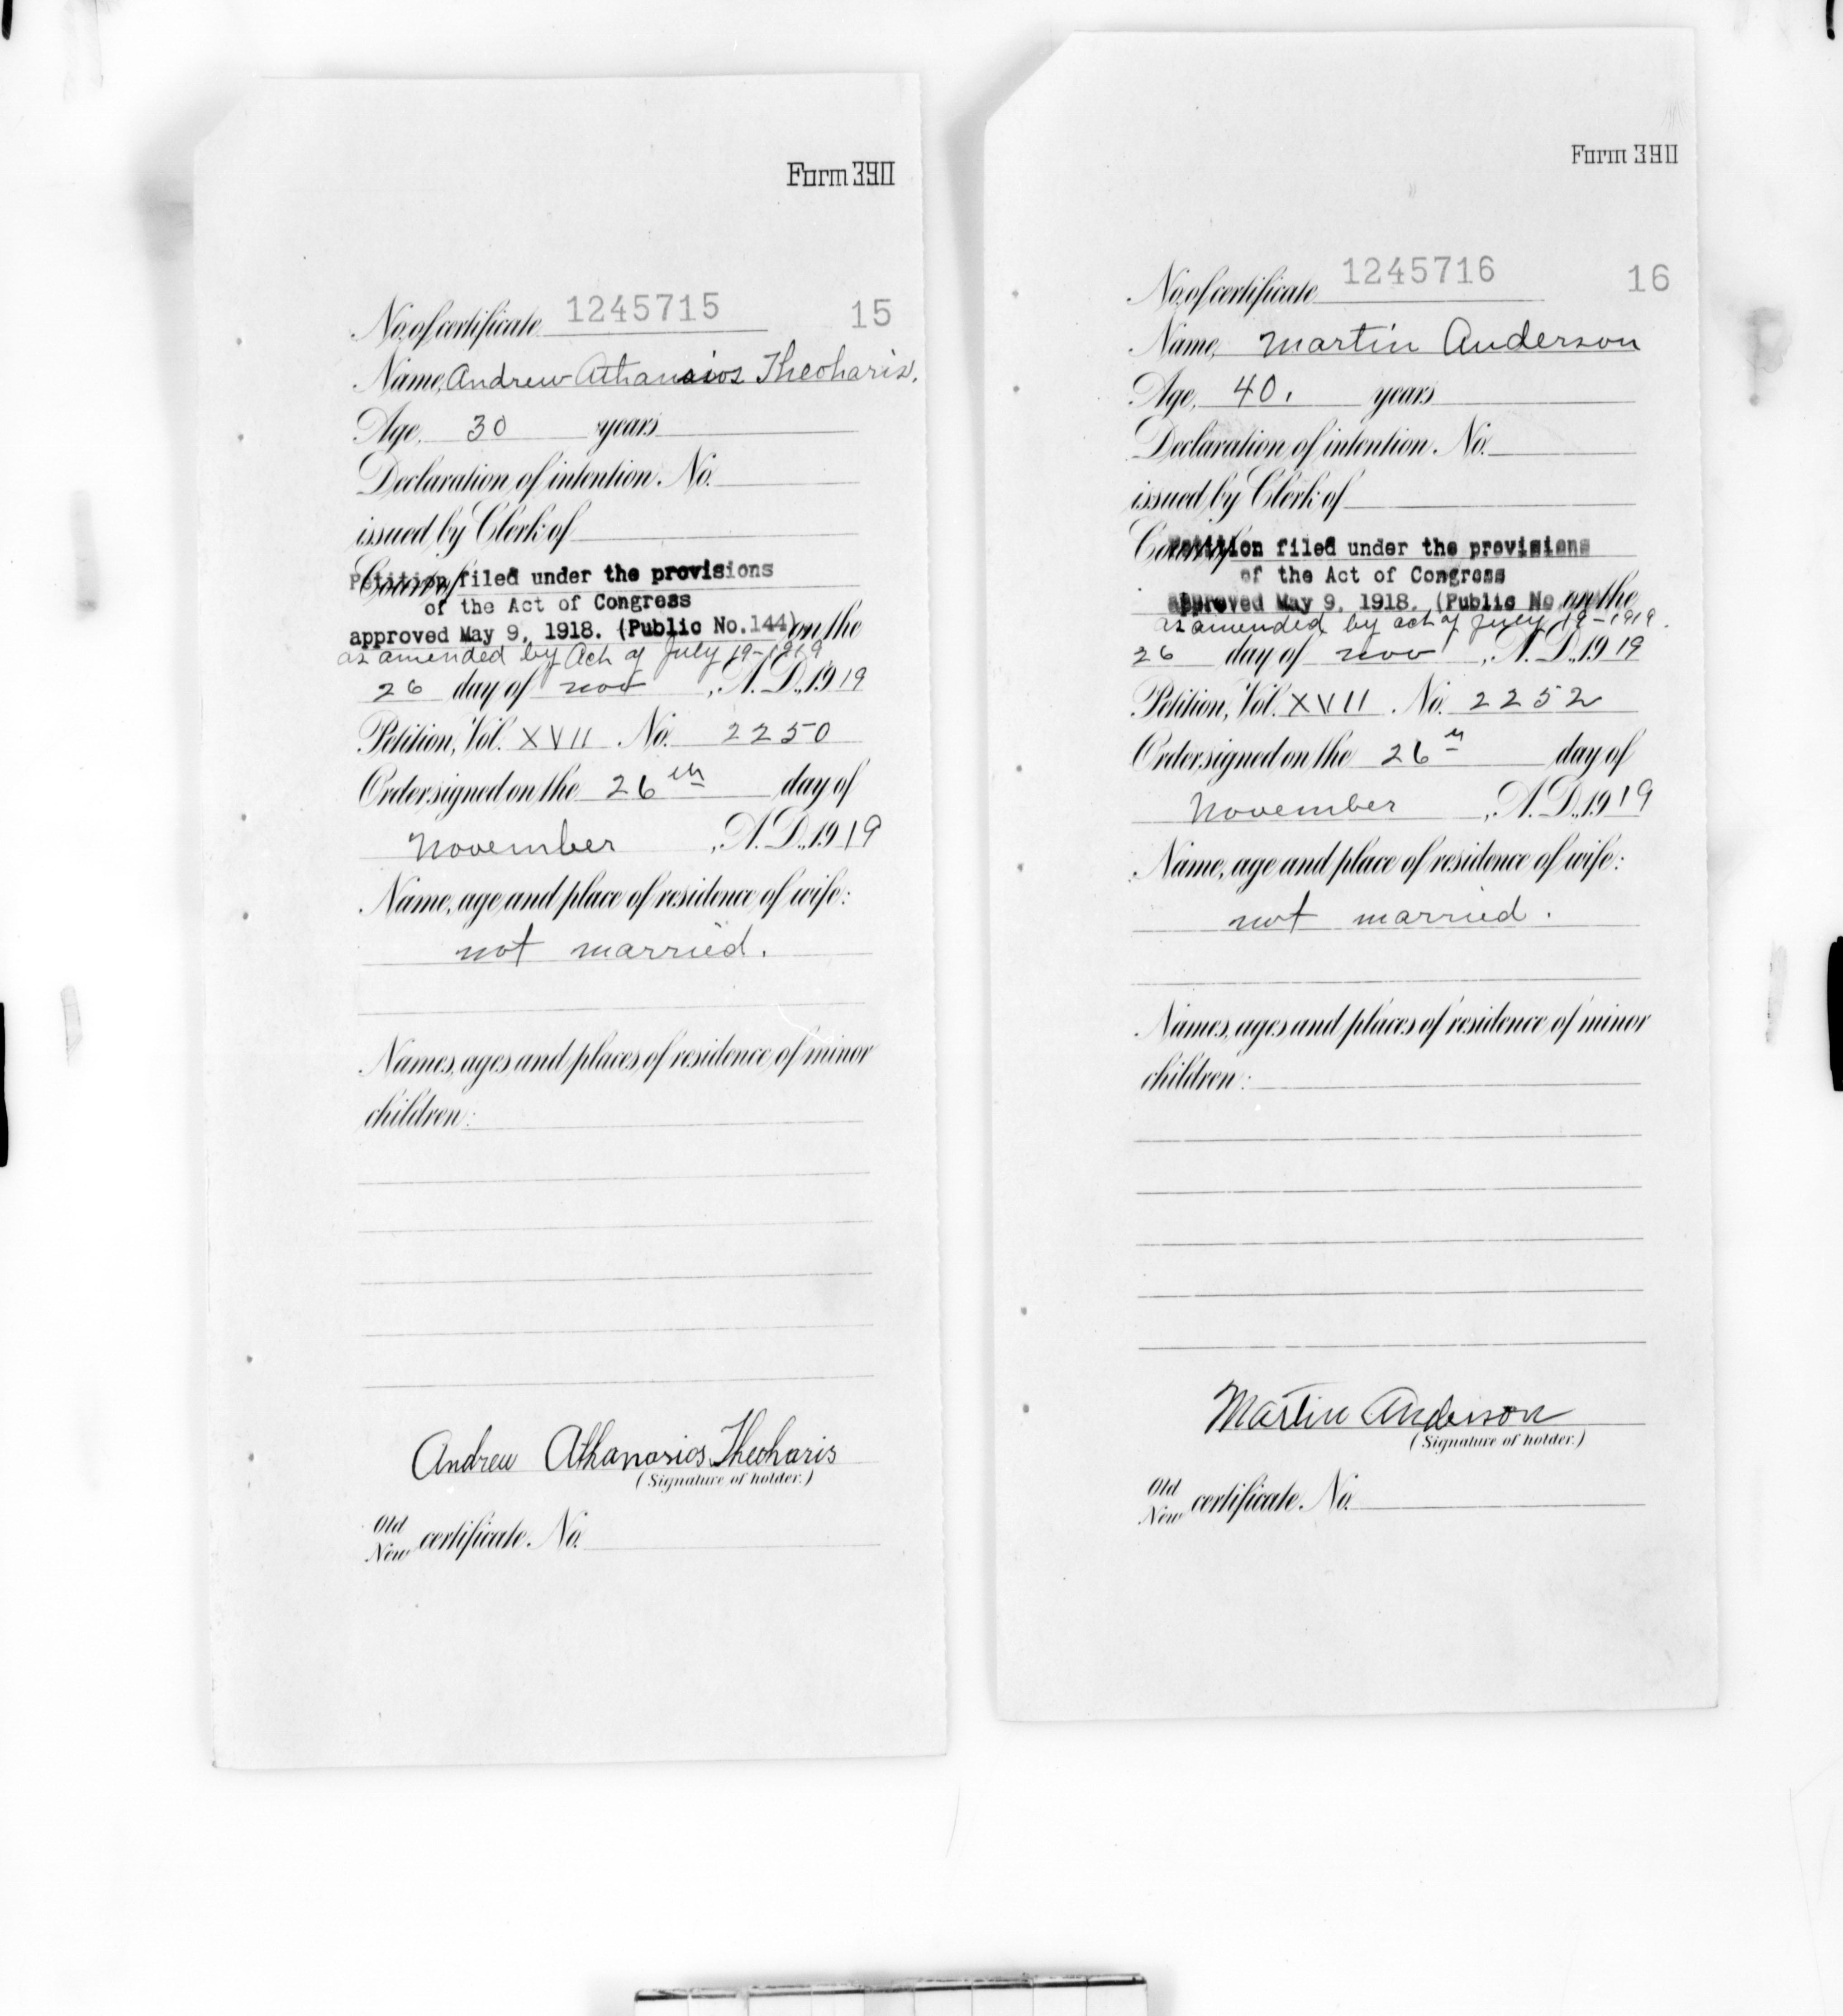 Form 390
No. of certificate 1245715 15
Name, Andrew Athanasios Theoharis.
Age, 30 years
Declaration of intention. No.
issued by Clerk of
Petition filed under the provisions
of the Act of Congress
approved May 9, 1918. (Public No. 144) on the
as amended by Act of July 19-1919
26 day of nov , A. D., 1919
Petition, Vol. XVII No. 2250
Order signed on the 26th day of
November , A. D., 1919
Name, age and place of residence of wife:
not married.
Names, ages and places of residence of minor
children:
Andrew Athanasios Theoharis
(Signature of holder.)
Old
New certificate. No.
Form 390
No. of certificate 1245716 16
Name, Martin Anderson
Age, 40. years
Declaration of intention. No.
issued by Clerk of
Petition filed under the provisions
of the Act of Congress
approved May 9, 1918. (Public No on the
as amended by act of July 19-1919.
26 day of nov , A. D., 1919
Petition, Vol. XVII No. 2252
Order signed on the 26" day of
November , A. D., 1919
Name, age and place of residence of wife:
not married.
Names, ages and places of residence of minor
children:
Martin Anderson
(Signature of holder.)
Old
New certificate. No.